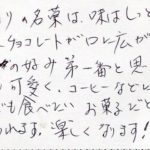 りの名菓は、味はしっと
チョコレートが口に広が
の好み第一番と思
可愛く、コーヒーなどに
も食べたい お菓子だと
われます。楽しくなります!